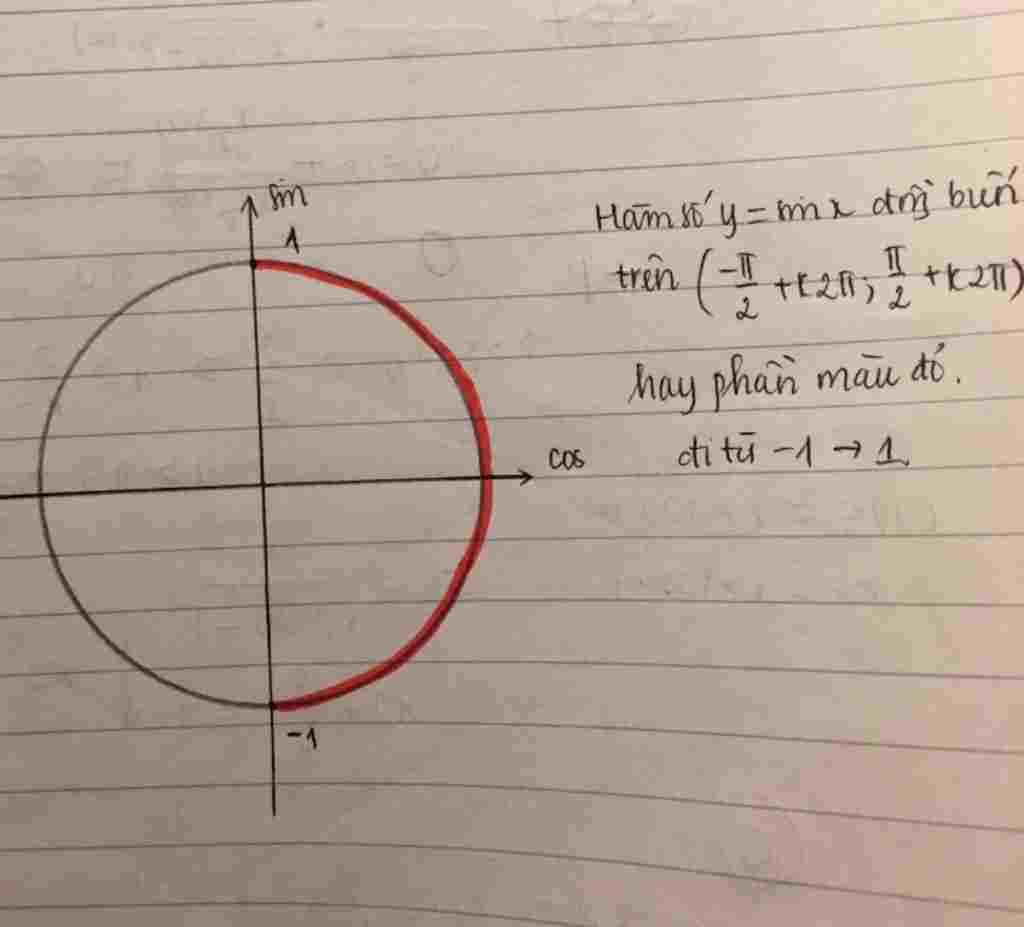 sin
1
Hàm số y = sin x đồng biến
trên (-π/2 + k2π; π/2 + k2π)
hay phần màu đỏ.
cos
đi từ -1 → 1.
-1